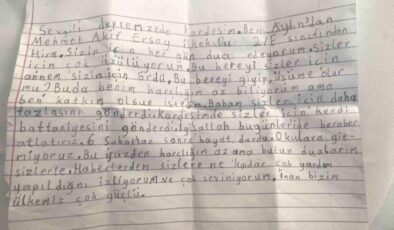 Sevgili depremzede kardeşim. Ben Aydın'dan
Mehmet Akif Ersoy İlkokulu 2/F sınıfından
Hira. Sizin için her gün dua ediyorum. Sizler
için çok üzülüyorum. Bu bereyi sizler için
annem sizin için ördü. Bu bereyi giyip üşüme olur
mu? Buda benim harçlığım az biliyorum ama
ben katkım olsun istedim. Babam sizler için daha
fazlasını gönderdi. Kardeşimde sizler için kendi
battaniyesini gönderdi. İnşallah bugünleride beraber
atlatırız. 6 Şubattan sonra hayat durdu. Okulara git-
miyoruz. Bu yüzden harçlığım az ama bütün dualarım
sizlerle. Haberlerden sizlere ne kadar çok yardım
yapıldığını izliyorum ve çok seviniyorum. İnan bizim
ülkemiz çok güçlü.